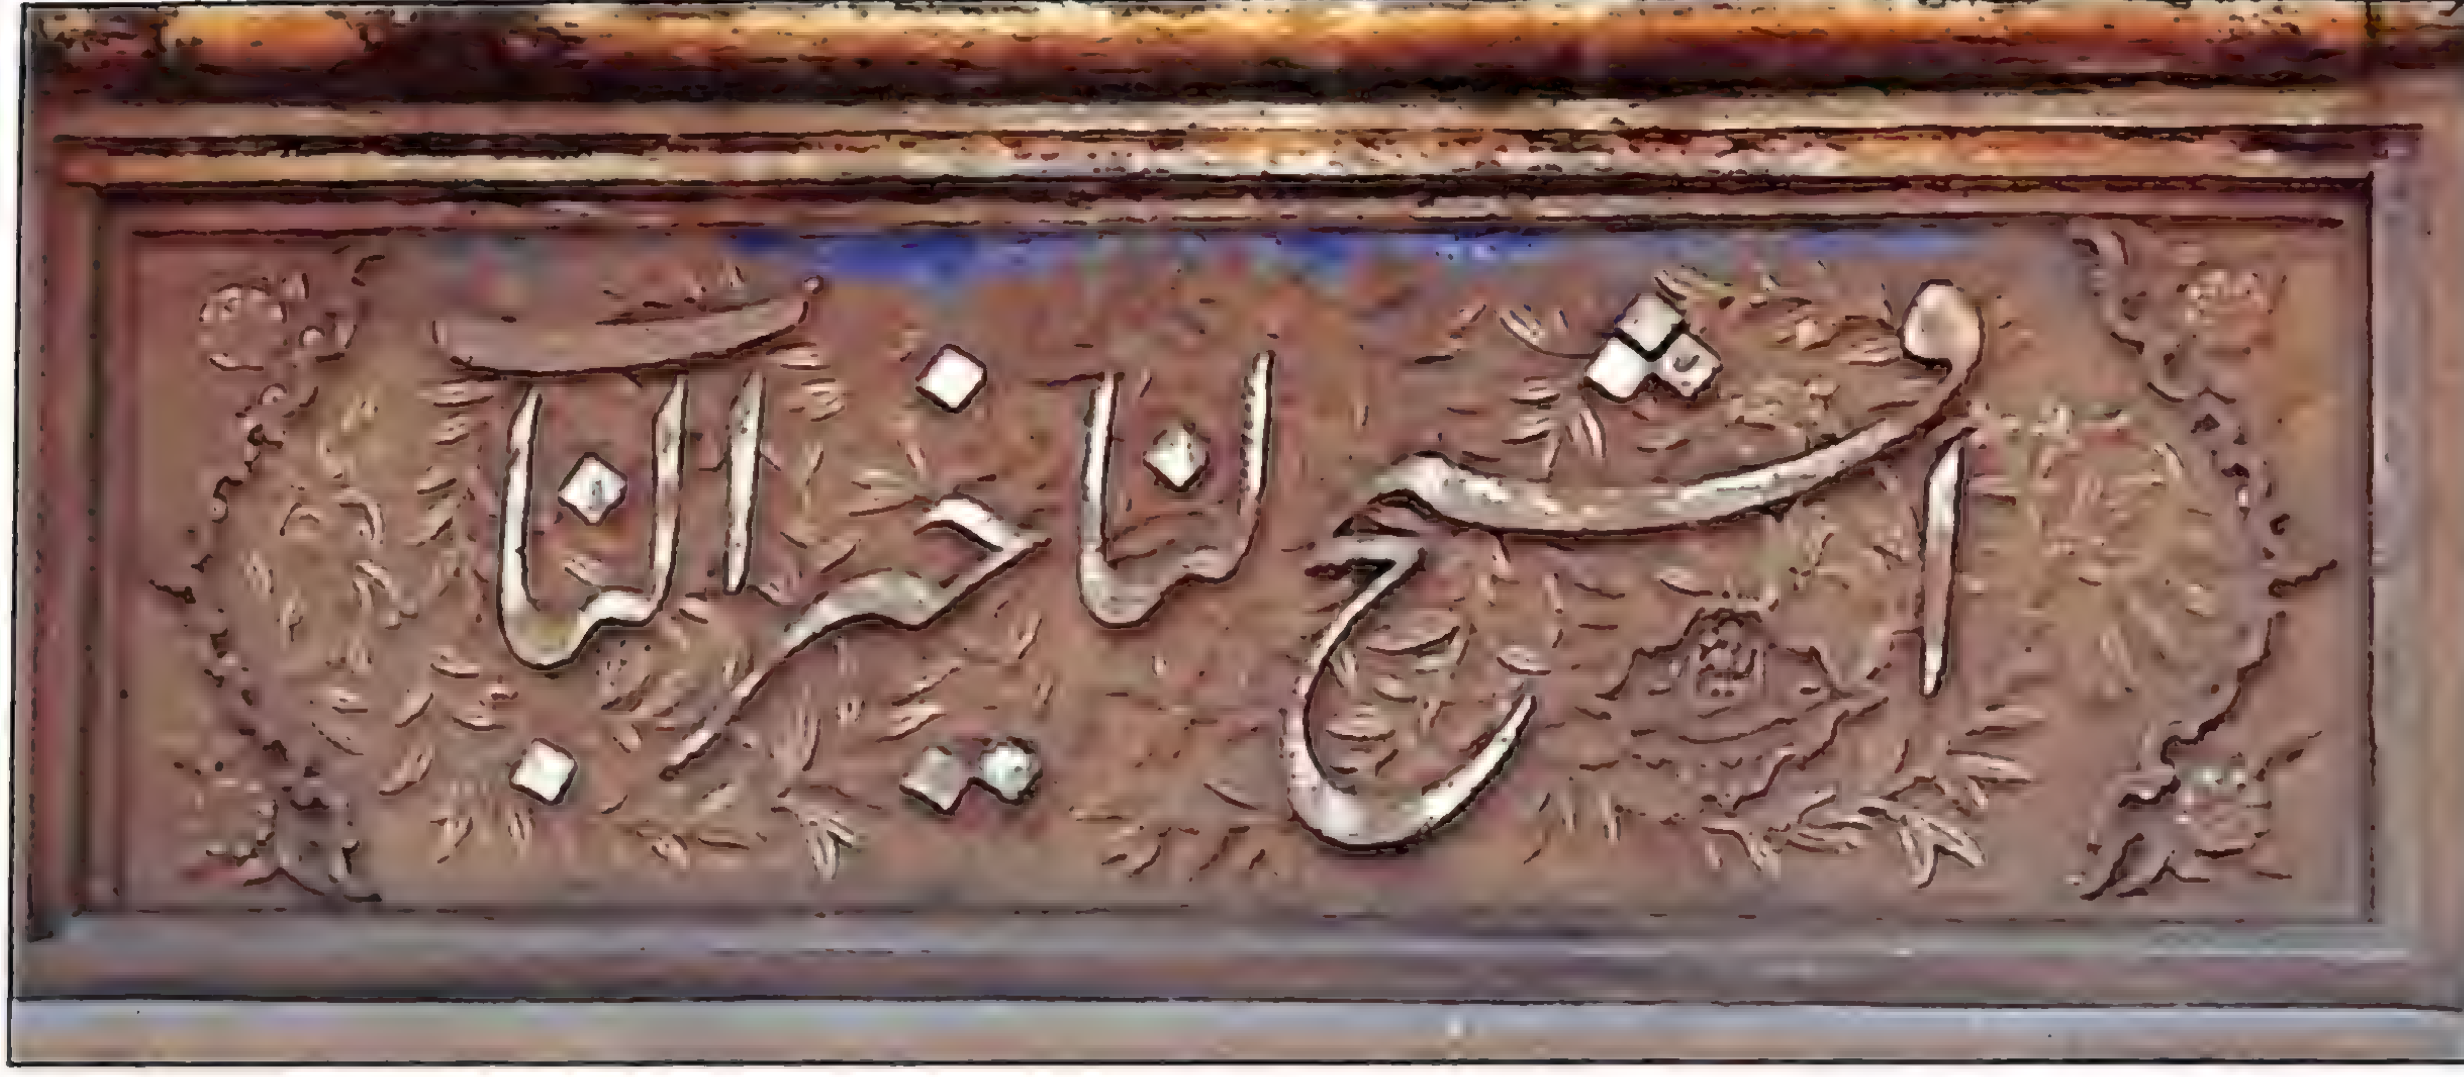 افتح لنا خیر الباب